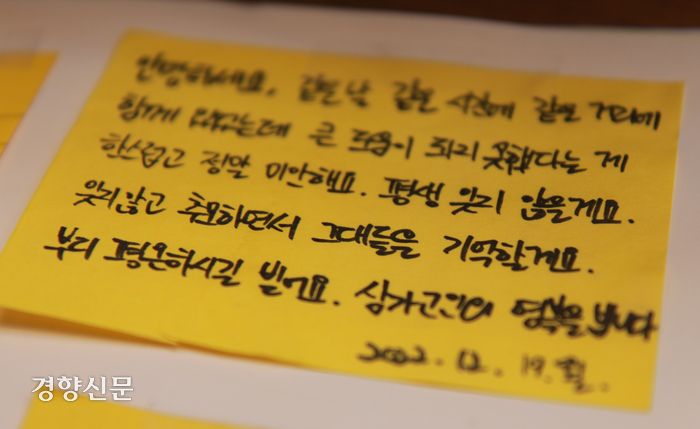 안녕하세요. 같은 날 같은 시간에 같은 거리에
함께 있었는데 큰 도움이 되지 못했다는 게
한스럽고 정말 미안해요. 평생 잊지 않을게요.
잊지않고 추모하면서 그대들을 기억할게요.
부디 평온하시길 빌어요. 삼가 고인의 명복을 빕니다
12. 19. 월.
경향신문